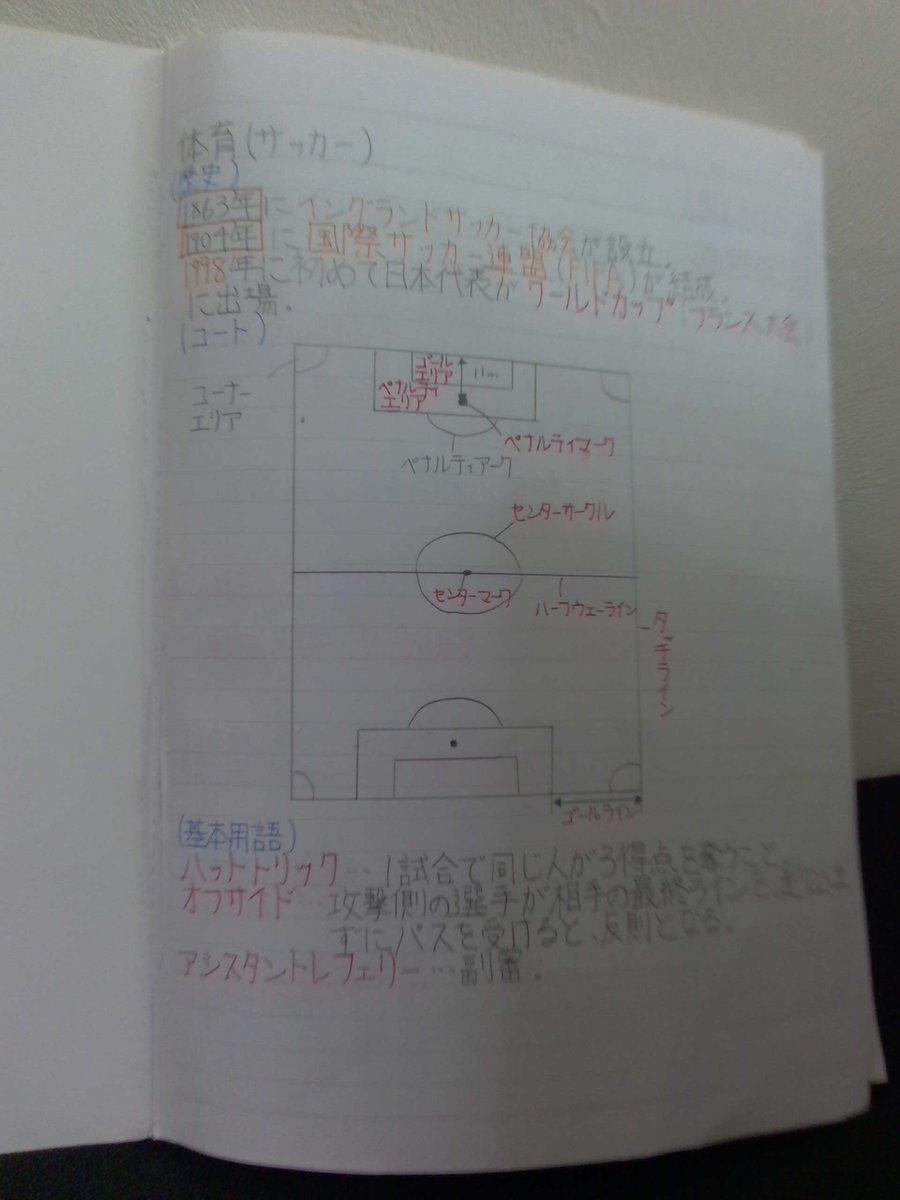 体育(サッカー)
(歴史)
1863年にイングランドサッカー協会が設立.
1904年に国際サッカー連盟(FIFA)が結成.
1998年に初めて日本代表がワールドカップ(フランス大会)
に出場.
(コート)
コーナー
エリア
ゴール
エリア
11m
ペナルティ
エリア
ペナルティマーク
ペナルティアーク
センターサークル
センターマーク
ハーフウェーライン
タッチライン
ゴールライン
(基本用語)
ハットトリック…1試合で同じ人が3得点を奪うこと.
オフサイド…攻撃側の選手が相手の最終ライン
ずにパスを受けると、反則となる.
アシスタントレフェリー…副審.